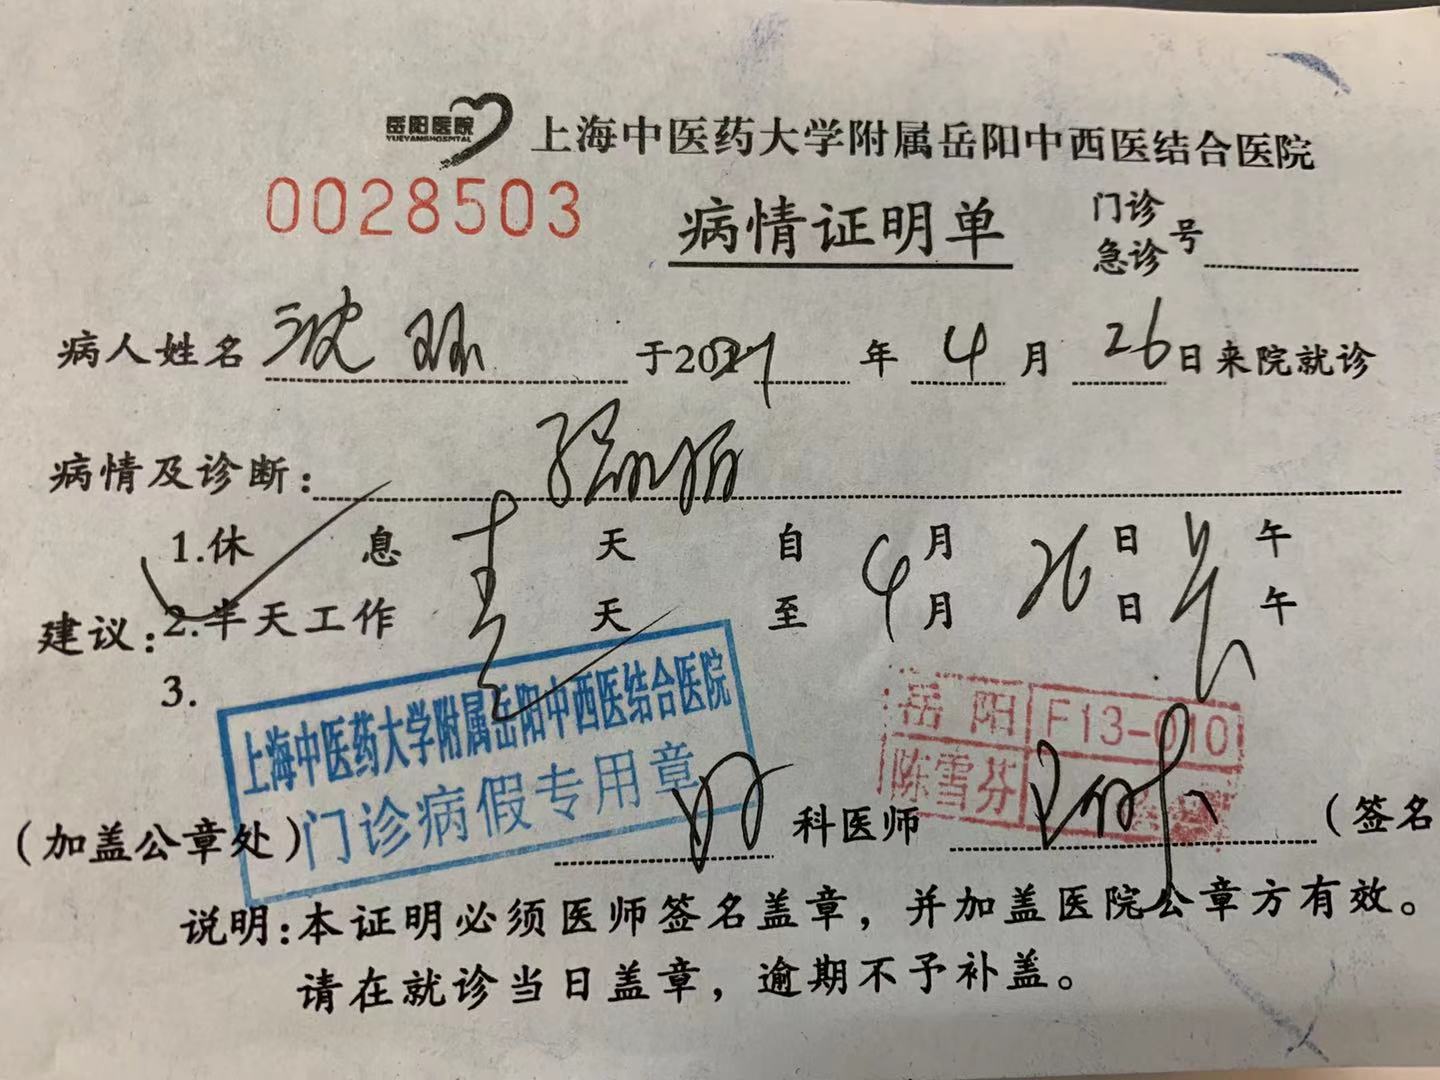 岳阳医院 上海中医药大学附属岳阳中西医结合医院
YUEYANHOSPITAL
0028503 病情证明单 门诊急诊号
病人姓名 沈 于202 年 4 月 26日来院就诊
病情及诊断：
建议：1.休 息 天 自 4月 26日 午
2.半天工作 天 至 4月 26日 午
3.
上海中医药大学附属岳阳中西医结合医院
门诊病假专用章
岳阳 F13-010
陈雪芬
（加盖公章处） 科医师 （签名
说明：本证明必须医师签名盖章，并加盖医院公章方有效。
请在就诊当日盖章，逾期不予补盖。